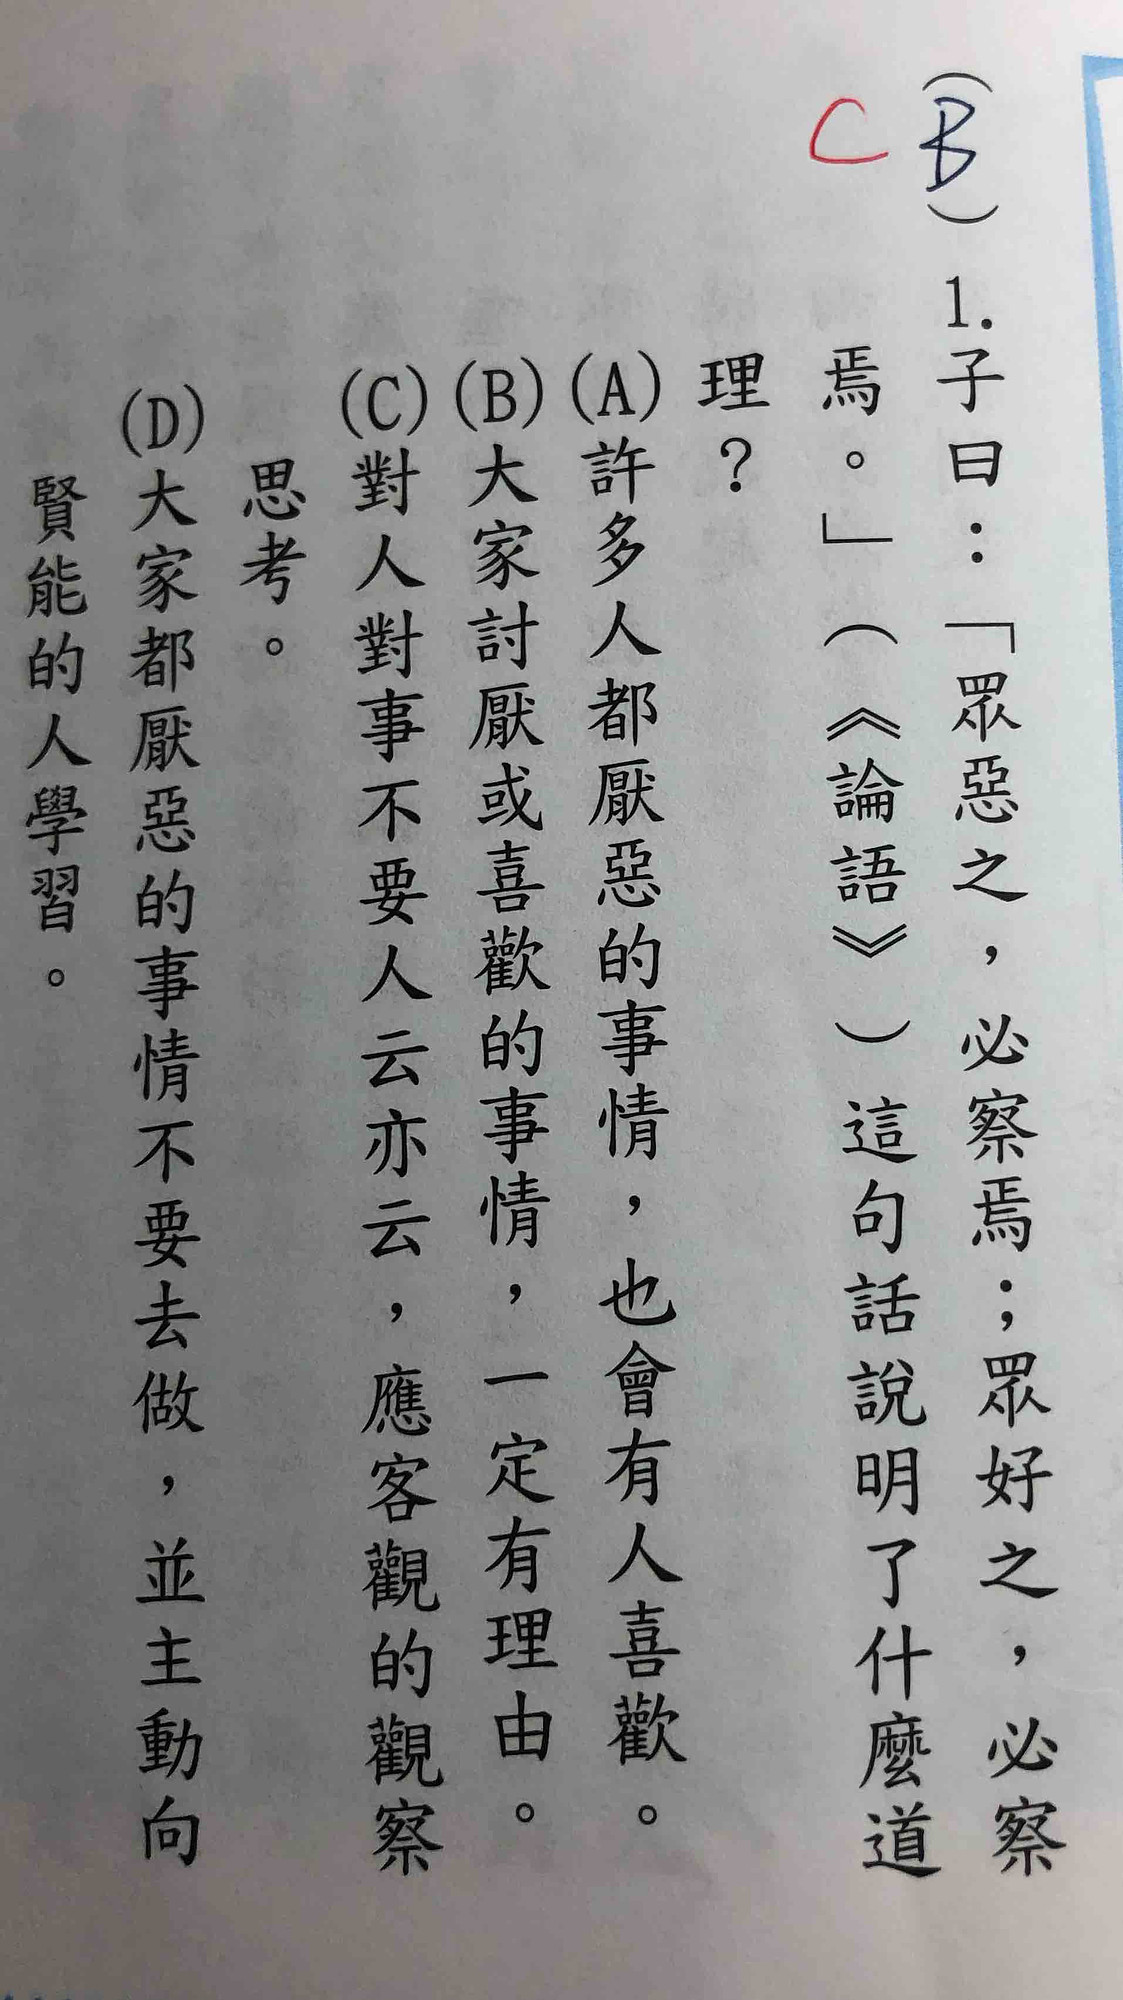 (B) 1.子曰：「眾惡之，必察焉；眾好之，必察
C 焉。」(《論語》)這句話說明了什麼道
理？
(A)許多人都厭惡的事情，也會有人喜歡。
(B)大家討厭或喜歡的事情，一定有理由。
(C)對人對事不要人云亦云，應客觀的觀察
思考。
(D)大家都厭惡的事情不要去做，並主動向
賢能的人學習。